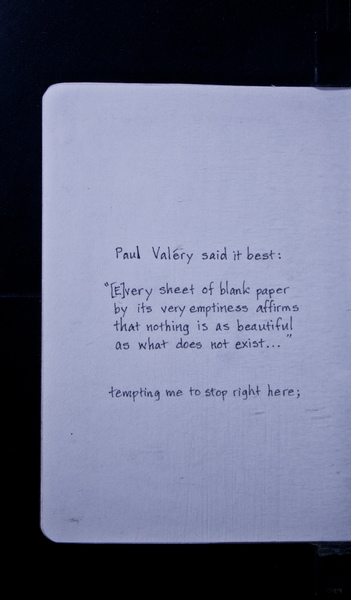 Paul Valéry said it best:
"[E]very sheet of blank paper
by its very emptiness affirms
that nothing is as beautiful
as what does not exist..."
tempting me to stop right here;